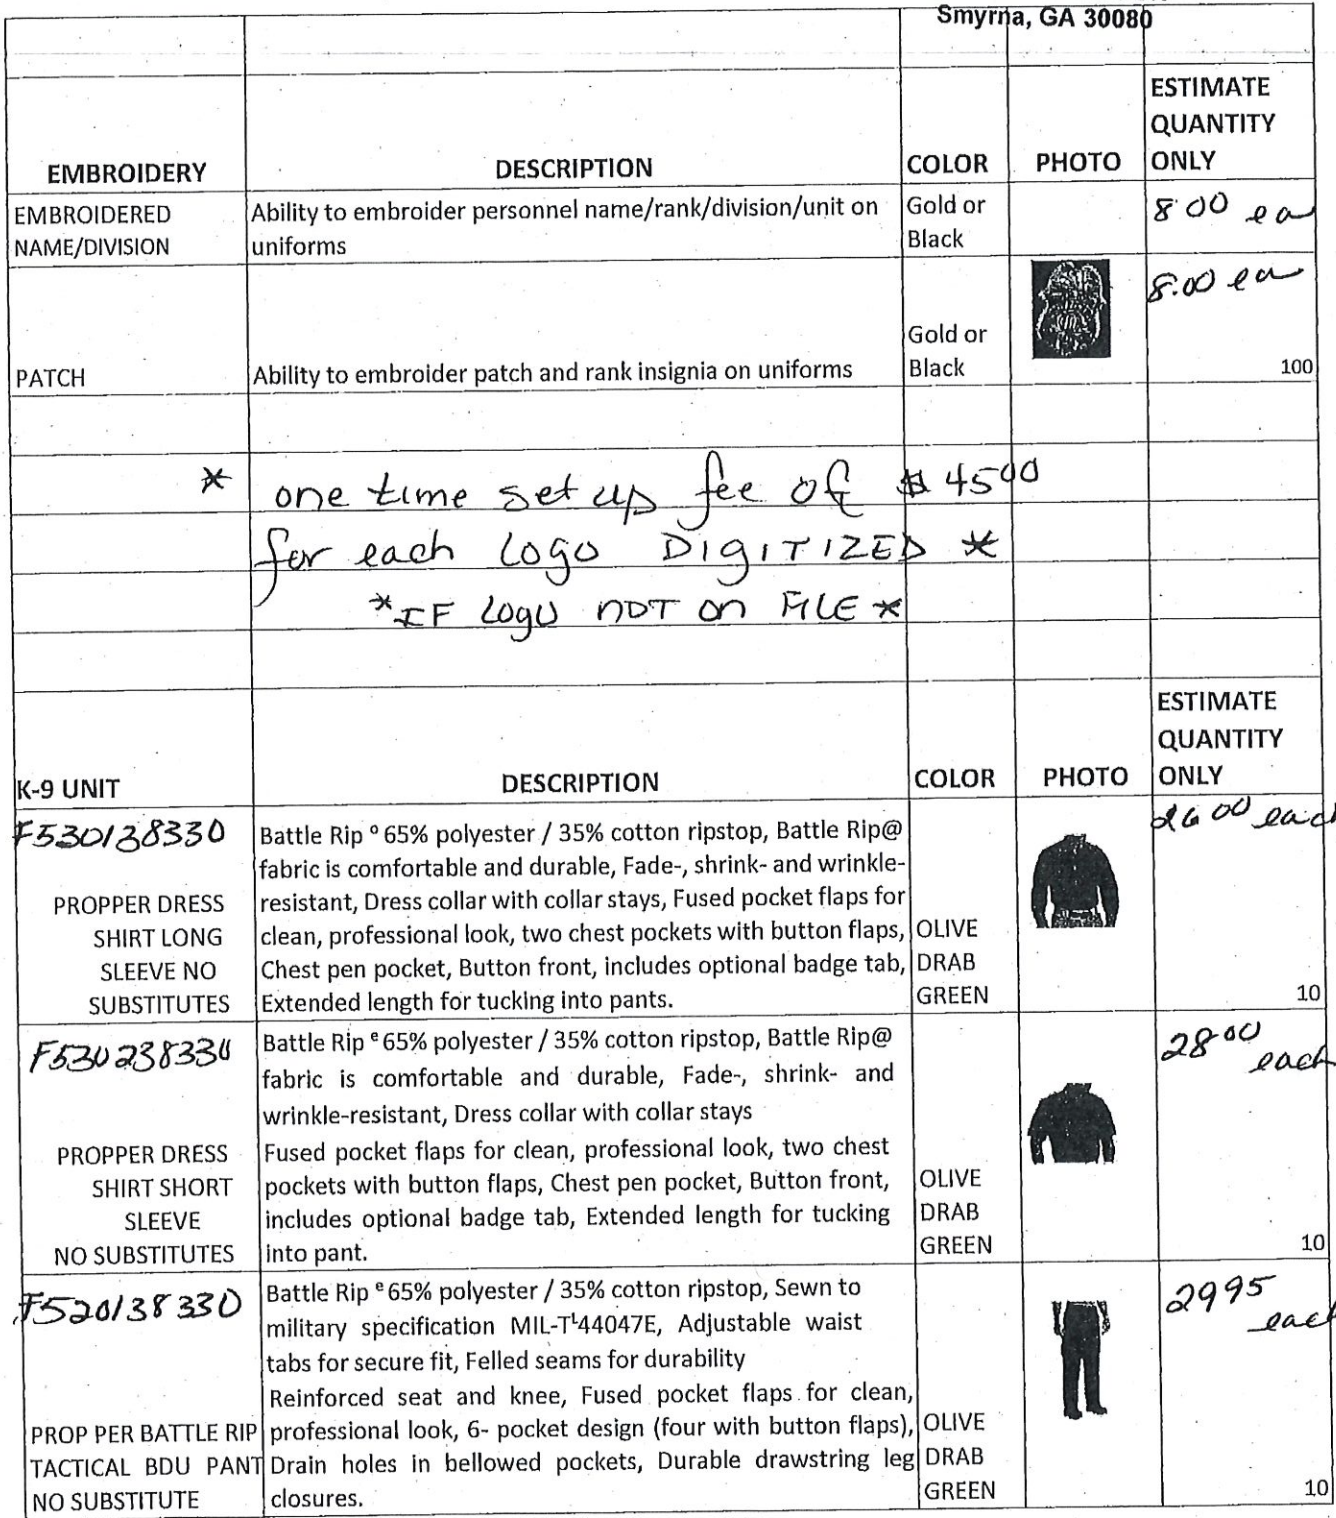 Smyrna, GA 30080
EMBROIDERY DESCRIPTION COLOR PHOTO ESTIMATE QUANTITY ONLY
EMBROIDERED NAME/DIVISION
Ability to embroider personnel name/rank/division/unit on
uniforms
Gold or
Black
8.00 ea
PATCH
Ability to embroider patch and rank insignia on uniforms
Gold or
Black
8.00 ea
100
* one time set up fee of $ 4500
for each logo DIGITIZED *
*IF Logo NOT on FILE *
K-9 UNIT DESCRIPTION COLOR PHOTO ESTIMATE QUANTITY ONLY
F530138330
PROPPER DRESS
SHIRT LONG
SLEEVE NO
SUBSTITUTES
Battle Rip º 65% polyester / 35% cotton ripstop, Battle Rip@
fabric is comfortable and durable, Fade-, shrink- and wrinkle-
resistant, Dress collar with collar stays, Fused pocket flaps for
clean, professional look, two chest pockets with button flaps,
Chest pen pocket, Button front, includes optional badge tab,
Extended length for tucking into pants.
OLIVE
DRAB
GREEN
each
10
F530238330
PROPPER DRESS
SHIRT SHORT
SLEEVE
NO SUBSTITUTES
Battle Rip e 65% polyester / 35% cotton ripstop, Battle Rip@
fabric is comfortable and durable, Fade-, shrink- and
wrinkle-resistant, Dress collar with collar stays
Fused pocket flaps for clean, professional look, two chest
pockets with button flaps, Chest pen pocket, Button front,
includes optional badge tab, Extended length for tucking
into pant.
OLIVE
DRAB
GREEN
2800
each
10
F520138330
PROP PER BATTLE RIP
TACTICAL BDU PANT
NO SUBSTITUTE
Battle Rip e 65% polyester / 35% cotton ripstop, Sewn to
military specification MIL-T-44047E, Adjustable waist
tabs for secure fit, Felled seams for durability
Reinforced seat and knee, Fused pocket flaps for clean,
professional look, 6- pocket design (four with button flaps),
Drain holes in bellowed pockets, Durable drawstring leg
closures.
OLIVE
DRAB
GREEN
2995
each
10